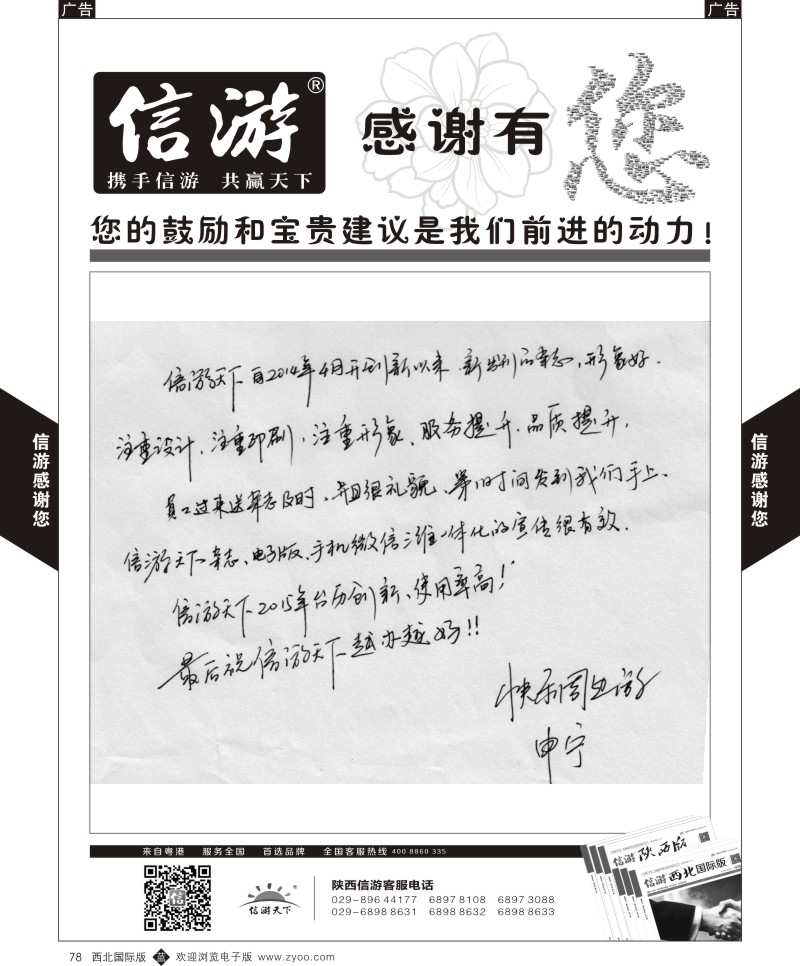 广告
广告
信游®
携手信游 共赢天下
感谢有您
您的鼓励和宝贵建议是我们前进的动力!
信游天下自2014年4月开创新以来.新出刊的杂志,形象好.
注重设计.注重印刷,注重形象、服务提升.品质提升.
员工过来送杂志及时、并且很礼貌、第一时间发到我们手上.
信游天下杂志、电子版、手机微信三维一体化的宣传很有效.
信游天下2015年台历创新、使用率高!
最后祝信游天下越办越好!!
快乐周边游
申宁
信游感谢您
信游感谢您
来自粤港 服务全国 首选品牌 全国客服热线 400 8860 335
信游天下
陕西信游客服电话
029-896 44177 6897 8108 6897 3088
029-6898 8631 6898 8632 6898 8633
信游 陕西版
信游 西北国际版
78 西北国际版 蓝 欢迎浏览电子版 www.zyoo.com